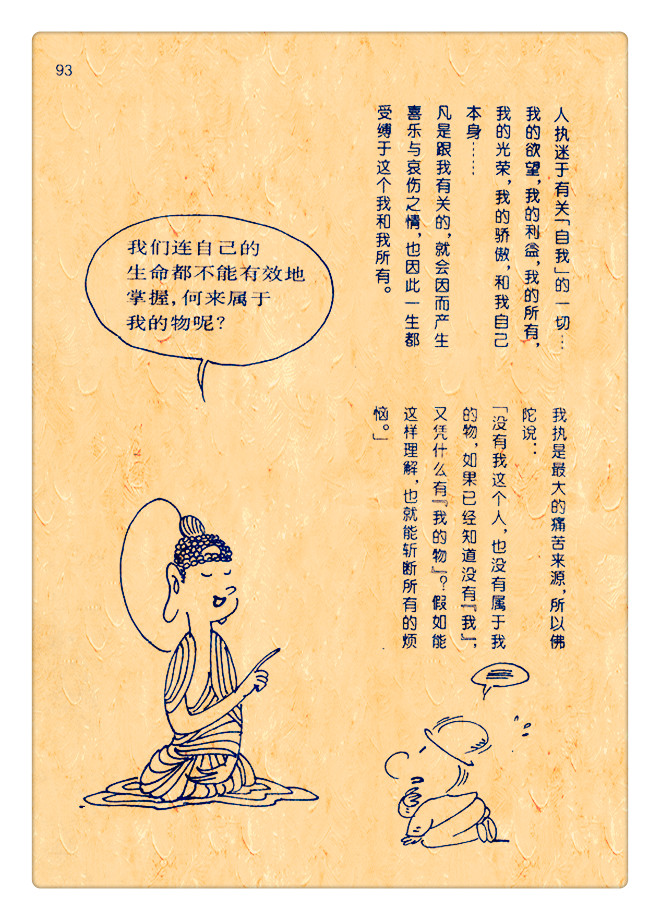 93
人执迷于有关「自我」的一切…
我的欲望，我的利益，我的所有，
我的光荣，我的骄傲，和我自己
本身……
凡是跟我有关的，就会因而产生
喜乐与哀伤之情，也因此一生都
受缚于这个我和我所有。
我们连自己的
生命都不能有效地
掌握，何来属于
我的物呢？
我执是最大的痛苦来源，所以佛
陀说：
「没有我这个人，也没有属于我
的物，如果已经知道没有『我』，
又凭什么有『我的物』？假如能
这样理解，也就能斩断所有的烦
恼。」